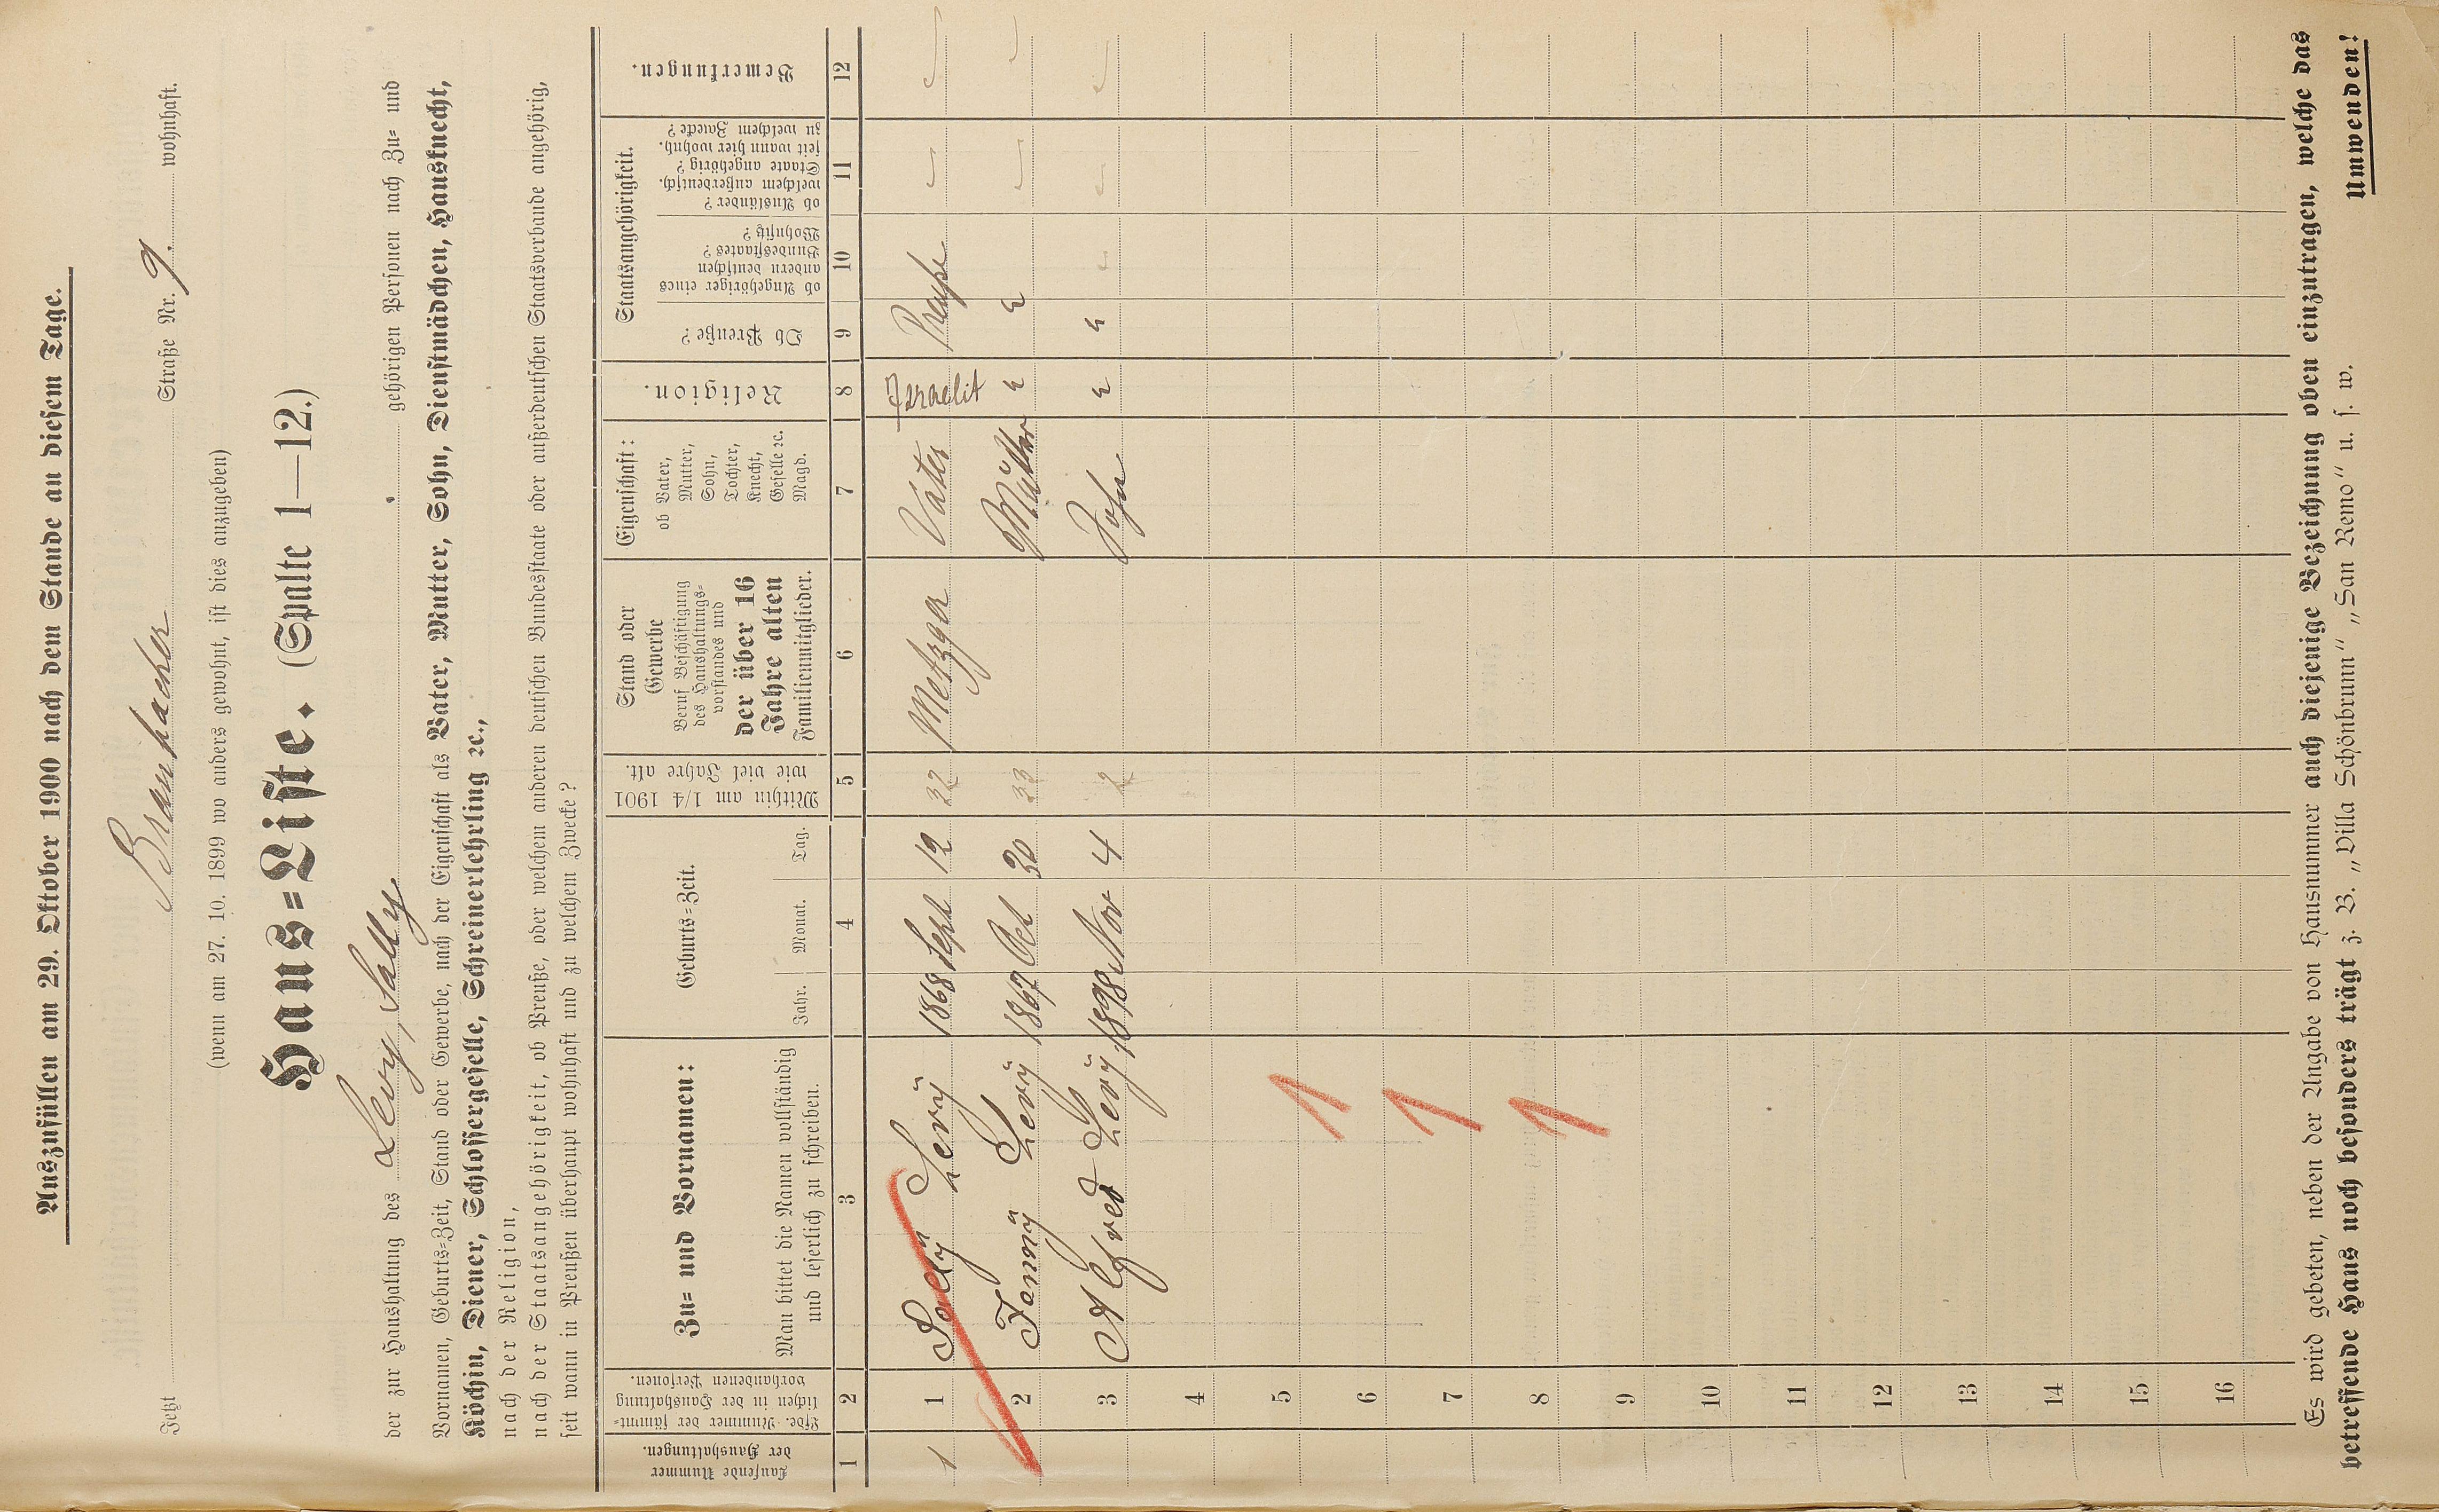 Auszufüllen am 29. Oktober 1900 nach dem Stande an diesem Tage.
Jetzt Straße Nr. 9. wohnhaft.
(wenn am 27. 10. 1899 wo anders gewohnt, ist dies anzugeben)
Haus=Liste. (Spalte 1—12.)
der zur Haushaltung des Levy, Sally. gehörigen Personen nach Zu= und
Vornamen, Geburts=Zeit, Stand oder Gewerbe, nach der Eigenschaft als Vater, Mutter, Sohn, Dienstmädchen, Hausknecht,
Köchin, Diener, Schlossergeselle, Schreinerlehrling ꝛc.,
nach der Religion,
nach der Staatsangehörigkeit, ob Preuße, oder welchem anderen deutschen Bundesstaate oder außerdeutschen Staatsverbande angehörig,
seit wann in Preußen überhaupt wohnhaft und zu welchem Zwecke?
Laufende Nummer
der Haushaltungen.
Lfde. Nummer der sämmt=
lichen in der Haushaltung
vorhandenen Personen.
Zu= und Vornamen:
Man bittet die Namen vollständig
und leserlich zu schreiben.
Geburts=Zeit.
Jahr. Monat. Tag.
Mithin am 1/4 1901
wie viel Jahre alt.
Stand oder
Gewerbe
Beruf Beschäftigung
des Haushaltungs=
vorstandes und
der über 16
Jahre alten
Familienmitglieder.
Eigenschaft:
ob Vater,
Mutter,
Sohn,
Tochter,
Knecht,
Geselle ꝛc.
Magd.
Religion.
Staatsangehörigkeit.
Ob Preuße?
ob Angehöriger eines
andern deutschen
Bundesstaates?
Wohnsitz?
ob Ausländer?
welchem außerdeutsch.
Staate angehörig?
seit wann hier wohnh.
zu welchem Zwecke?
Bemerkungen.
1 2 3 4 5 6 7 8 9 10 11 12
1 1 Sally Levÿ 1868 Sept 12 32 Metzger Vater Israelit Preuße
2 Fannÿ Levÿ 1867 Oct 30 33 Mutter " "
3 Alfred Levÿ 1898 Nov 4 2 Sohn " "
4
5
6
7
8
9
10
11
12
13
14
15
16
Es wird gebeten, neben der Angabe von Hausnummer auch diejenige Bezeichnung oben einzutragen, welche das
betreffende Haus noch besonders trägt z. B. „Villa Schönbrunn" „San Remo" u. s. w.
Umwenden!